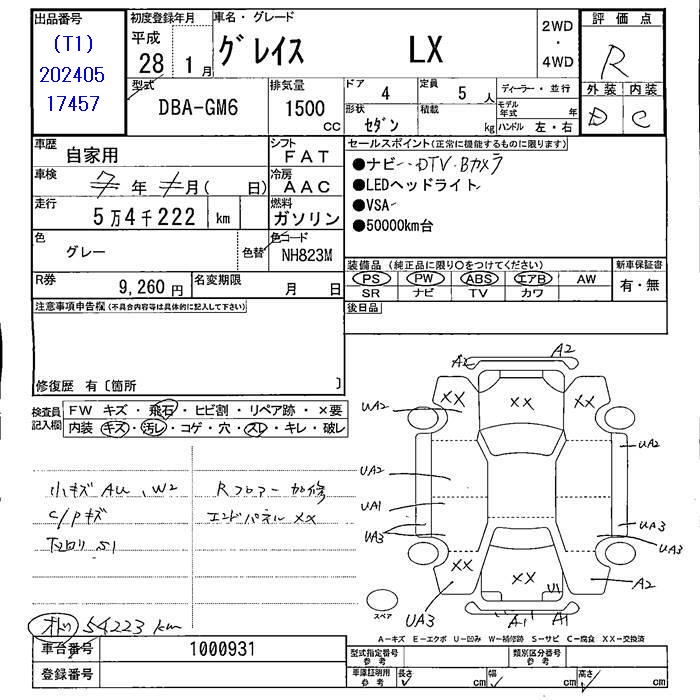 出品番号
(T1)
202405
17457
初度登録年月
平成
28 1 月
車名・グレード
グレイス LX
2WD
・
4WD
評価点
R
外装 内装
D C
型式
DBA-GM6
排気量
1500
CC
ドア
4
定員
5 人
形状
セダン
積載
kg
ディーラー・並行
モデル年式 年
ハンドル 左・右
車歴
自家用
シフト
FAT
車検
年 月( 日)
冷房
AAC
走行
5万4千222 km
燃料
ガソリン
色
グレー
色替
色コード
NH823M
R券
9,260 円
名変期限
月 日
セールスポイント(正常に機能するものに限ります)
●ナビ・DTV・Bカメラ
●LEDヘッドライト
●VSA
●50000km台
装備品(純正品に限り○をつけてください)
PS PW ABS エアB AW
SR ナビ TV カワ
新車保証書
有・無
後日品
注意事項申告欄(不具合内容等は具体的に記入して下さい)
修復歴 有〔箇所 〕
検査員
記入欄
FW キズ・飛石・ヒビ割・リペア跡・×要
内装 キズ・汚レ・コゲ・穴・スレ・キレ・破レ
小キズ AU、W2
C/Pキズ
下回り S1
Rフロアー 加修
エンドパネル XX
オドメ 54223 km
A2
A2
XX
XX
XX
UA2
UA2
UA2
UA1
UA3
UA3
UA3
XX
XX
U1
UA3
A2
A1
A1
スペア
A-キズ E-エクボ U-凹み W-補修跡 S-サビ C-腐食 XX-交換済
車台番号
1000931
登録番号
型式指定番号
参考
類別区分番号
参考
車庫証明用
参考
長さ cm
幅 cm
高さ cm